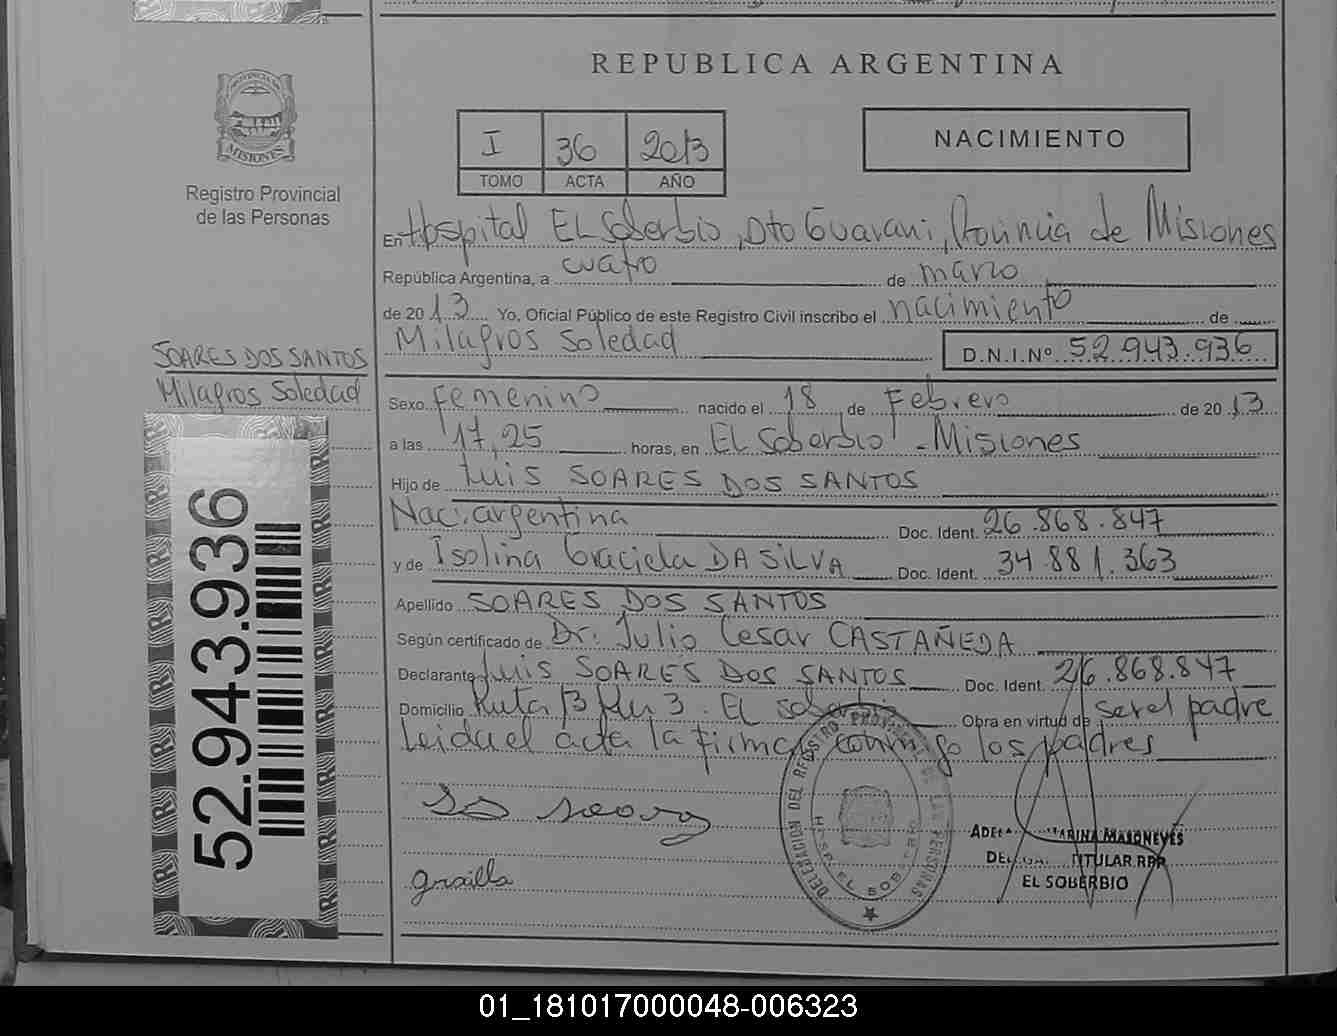 REPUBLICA ARGENTINA
PROVINCIA DE
MISIONES
Registro Provincial
de las Personas
I 36 2013
TOMO ACTA AÑO
NACIMIENTO
En Hospital El Soberbio, Dto Guaraní, Provincia de Misiones
República Argentina, a cuatro de marzo
de 2013 Yo, Oficial Público de este Registro Civil inscribo el nacimiento de
Milagros Soledad D.N.I.Nº 52.943.936
SOARES DOS SANTOS
Milagros Soledad
Sexo Femenino nacido el 18 de Febrero de 2013
a las 17,25 horas, en El Soberbio - Misiones
Hijo de Luis SOARES DOS SANTOS
Nac: argentina Doc. Ident. 26.868.847
y de Isolina Graciela DA SILVA Doc. Ident. 34.881.363
Apellido SOARES DOS SANTOS
Según certificado de Dr. Julio Cesar CASTAÑEDA
Declarante Luis SOARES DOS SANTOS Doc. Ident. 26.868.847
Domicilio Ruta 13 Km 3. El Soberbio Obra en virtud de ser el padre
Leida el acta la firman conmigo los padres
52.943.936
DELEGACION DEL REGISTRO PROVINCIAL DE LAS PERSONAS
HOSP. EL SOBERBIO
MASONEVES
TITULAR RPP
EL SOBERBIO
01_181017000048-006323